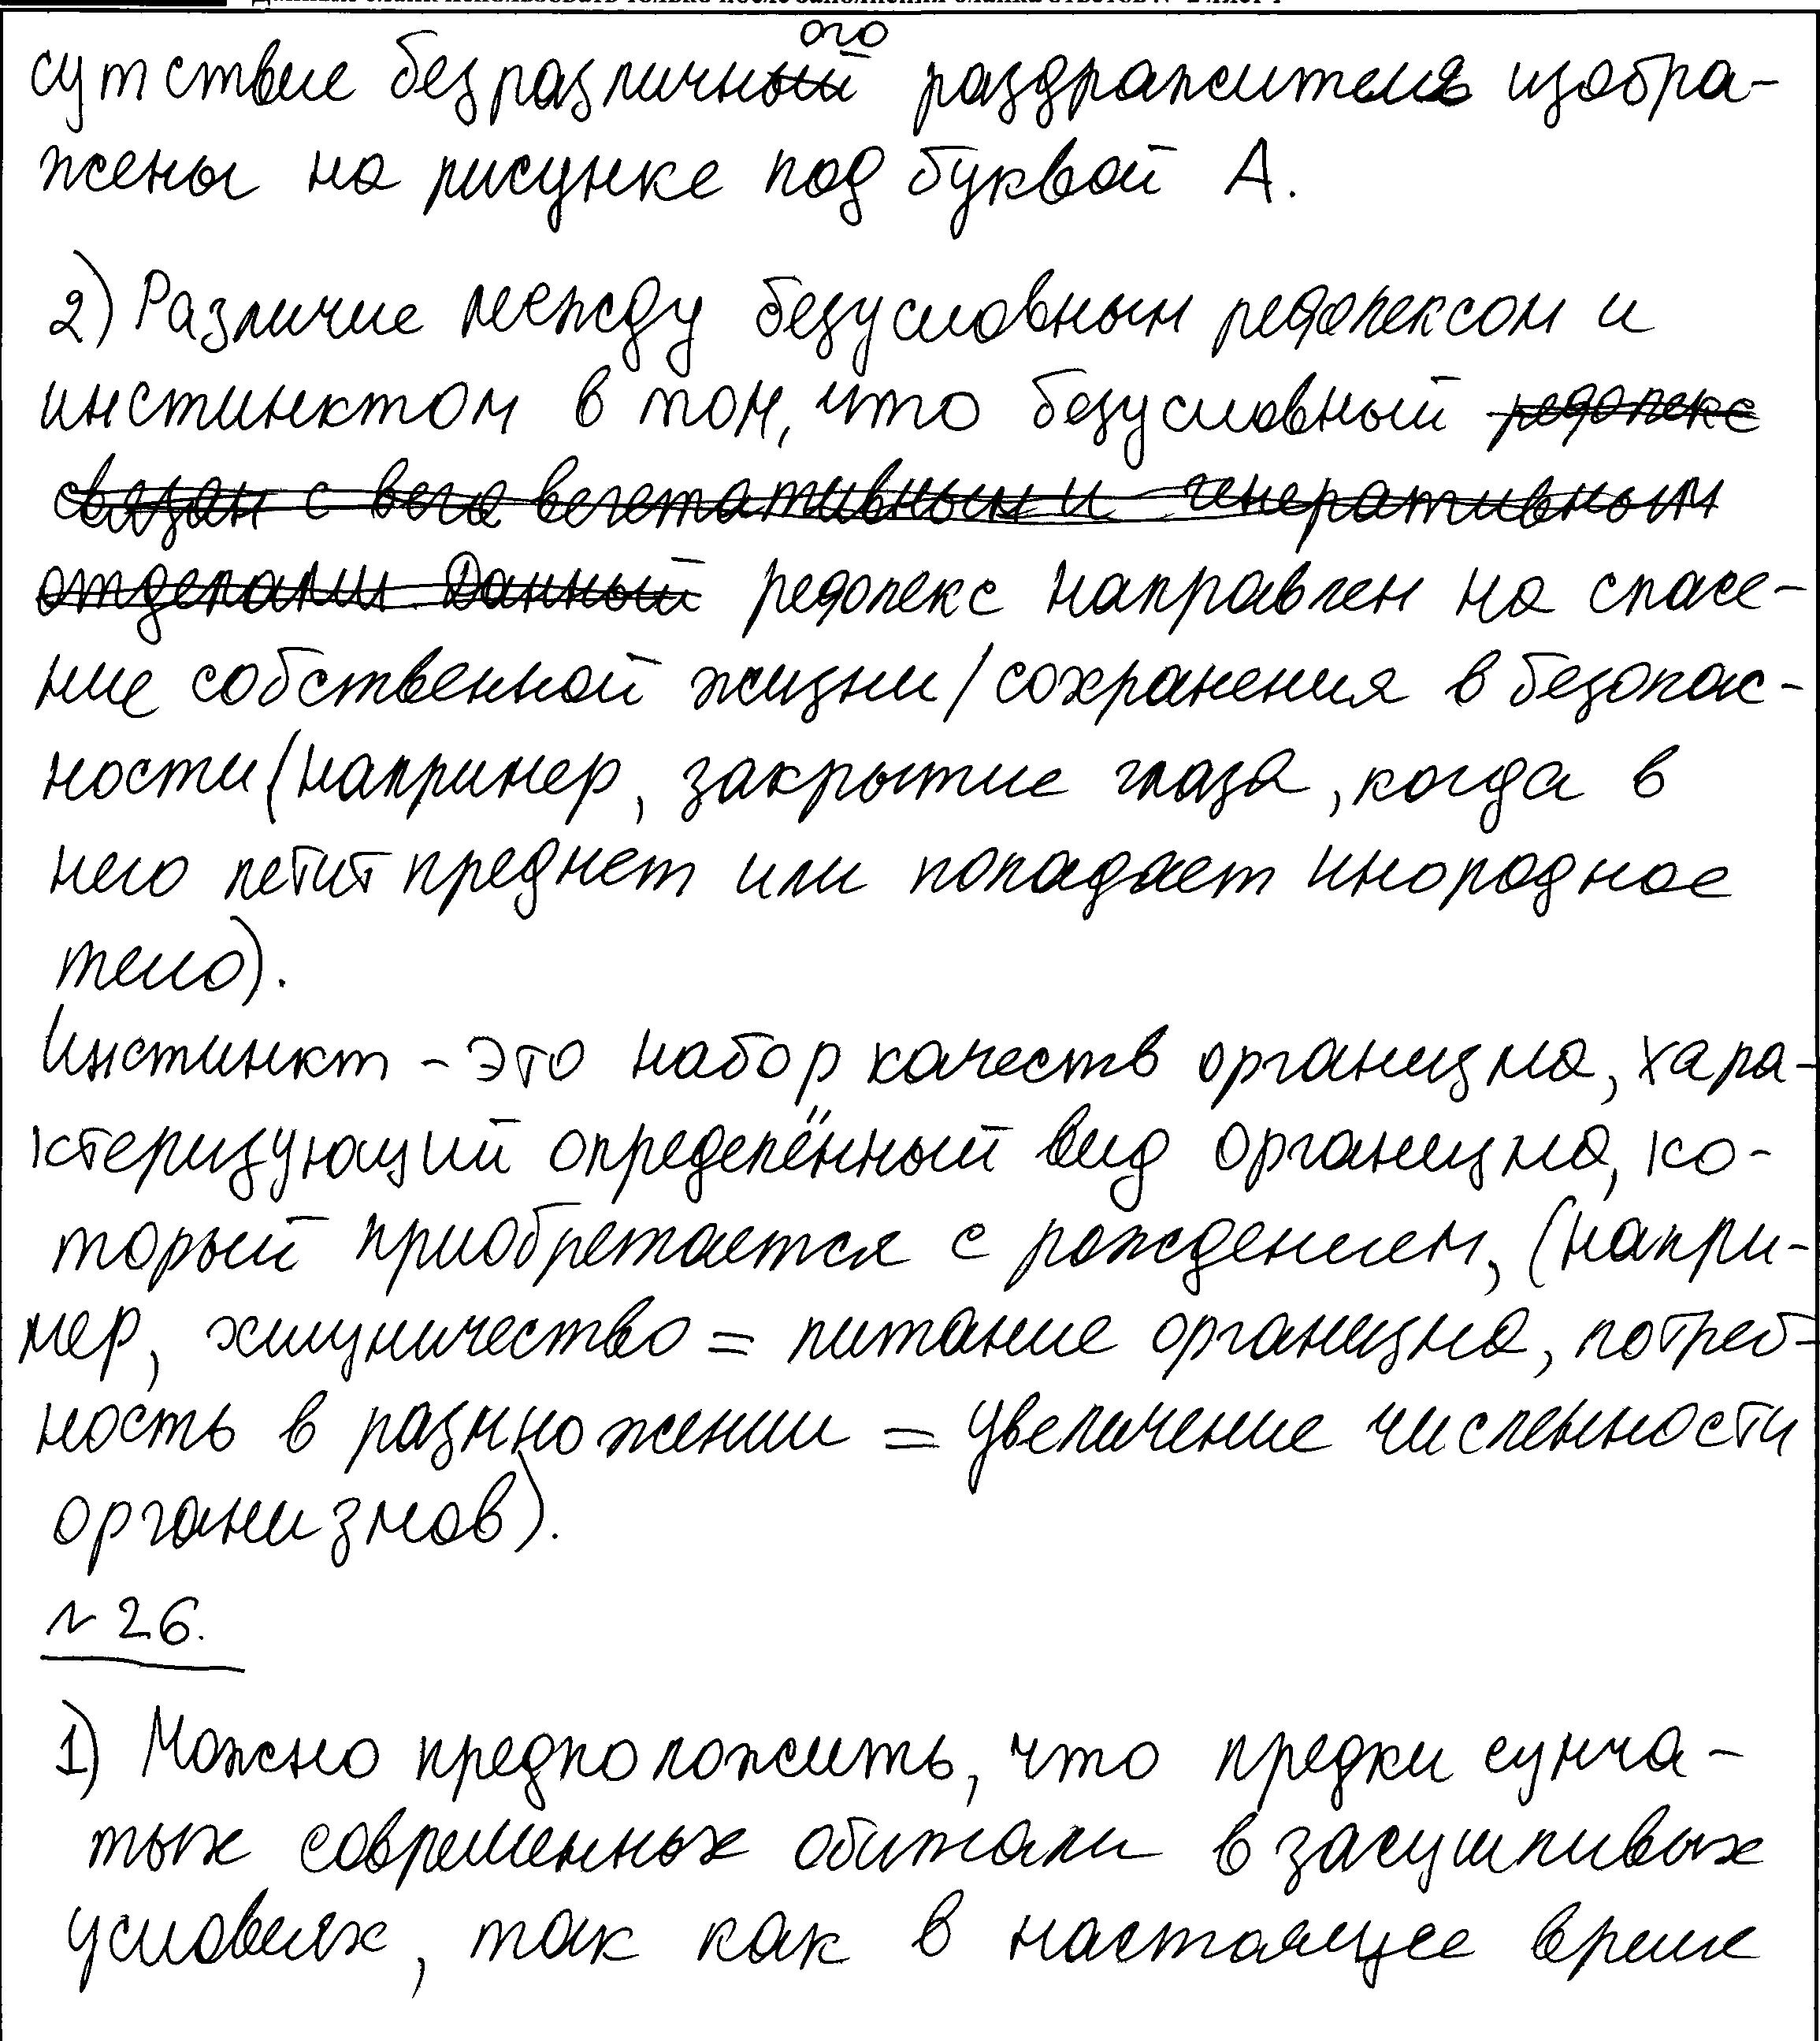 сутствие безразличного раздражителя изобра-
жены на рисунке под буквой А.
2) Различие между безусловным рефлексом и
инстинктом в том, что безусловный рефлекс
связан с вега вегетативным и генеративным
отделами. Данный рефлекс направлен на спасе-
ние собственной жизни/сохранения в безопас-
ности (например, закрытие глаза, когда в
него летит предмет или попадает инородное
тело).
Инстинкт - это набор качеств организма, хара-
ктеризующий определённый вид организма, ко-
торый приобретается с рождением, (напри-
мер, хищничество = питание организма, потреб-
ность в размножении = увеличение численности
организмов).
№ 26.
1) Можно предположить, что предки сумча-
тых современных обитали в засушливых
условиях, так как в настоящее время